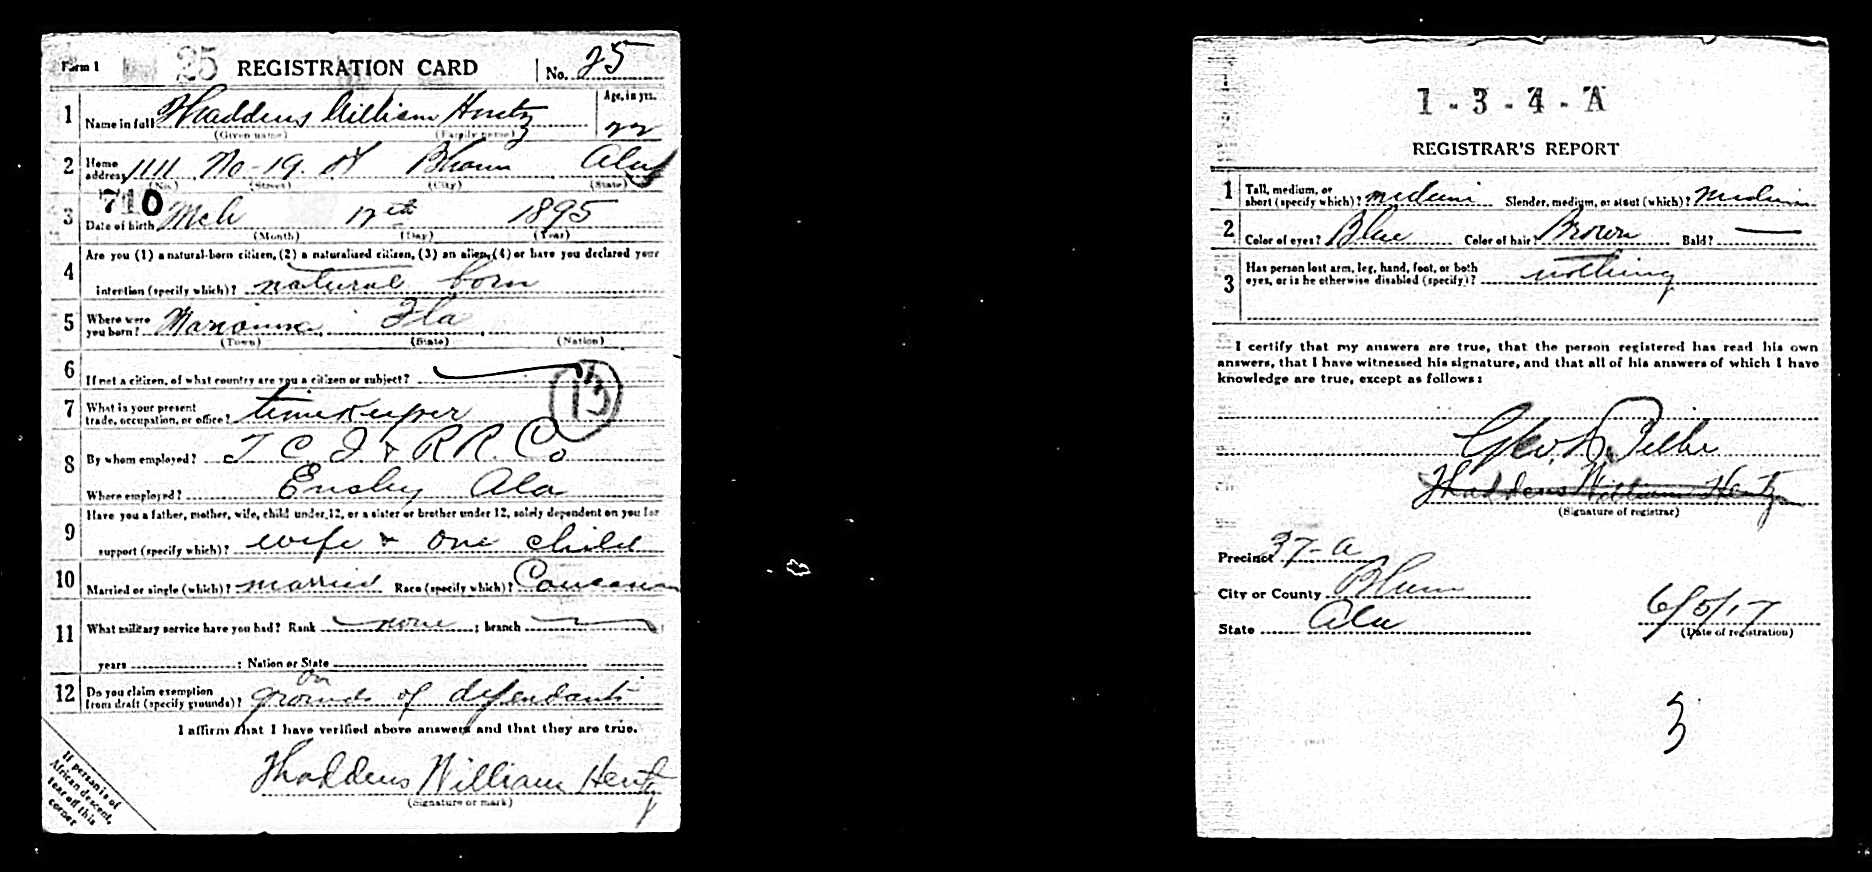 Form 1 25 REGISTRATION CARD No. 25
1 Name in full Thaddeus William Hentz Age, in yrs. 22
(Given name) (Family name)
2 Home address 1111 No-19. St Bham Ala
(No.) (Street) (City) (State)
710
3 Date of birth Mch 12th 1895
(Month) (Day) (Year)
4 Are you (1) a natural-born citizen, (2) a naturalized citizen, (3) an alien, (4) or have you declared your
intention (specify which)? natural born
5 Where were you born? Marianna, Fla
(Town) (State) (Nation)
6 If not a citizen, of what country are you a citizen or subject?
13
7 What is your present trade, occupation, or office? timekeeper
8 By whom employed? T C I & R R. Co
Where employed? Ensley Ala
9 Have you a father, mother, wife, child under 12, or a sister or brother under 12, solely dependent on you for
support (specify which)? wife & one child
10 Married or single (which)? married Race (specify which)? Caucasian
11 What military service have you had? Rank none ; branch
years ; Nation or State
on
12 Do you claim exemption from draft (specify grounds)? grounds of dependants
I affirm that I have verified above answers and that they are true.
Thaddeus William Hentz
(Signature or mark)
If person is of
African descent,
tear off this
corner
1-3-4-A
REGISTRAR'S REPORT
1 Tall, medium, or short (specify which)? medium Slender, medium, or stout (which)? medium
2 Color of eyes? Blue Color of hair? Brown Bald?
3 Has person lost arm, leg, hand, foot, or both
eyes, or is he otherwise disabled (specify)? nothing
I certify that my answers are true, that the person registered has read his own
answers, that I have witnessed his signature, and that all of his answers of which I have
knowledge are true, except as follows:
Geo.
Thaddeus William Hentz
(Signature of registrar)
Precinct 37-a
City or County Bham
State Ala
6/5/17
(Date of registration)
3